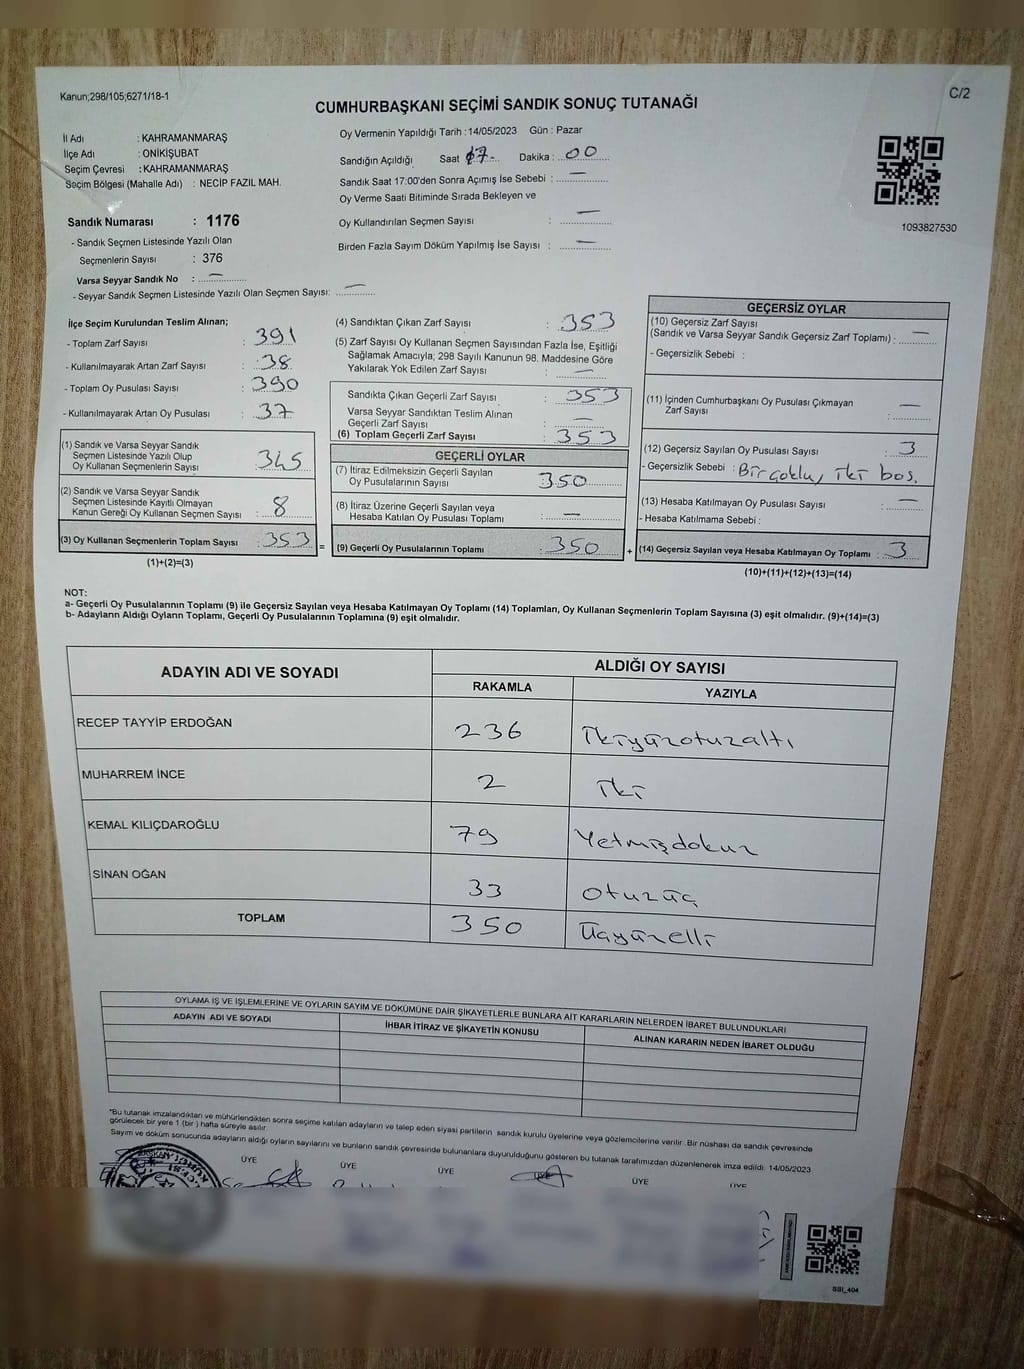 Kanun;298/105;6271/18-1
C/2
CUMHURBAŞKANI SEÇİMİ SANDIK SONUÇ TUTANAĞI
İl Adı : KAHRAMANMARAŞ
İlçe Adı : ONİKİŞUBAT
Seçim Çevresi : KAHRAMANMARAŞ
Seçim Bölgesi (Mahalle Adı) : NECİP FAZIL MAH.
Sandık Numarası : 1176
- Sandık Seçmen Listesinde Yazılı Olan
Seçmenlerin Sayısı : 376
Varsa Seyyar Sandık No : —
- Seyyar Sandık Seçmen Listesinde Yazılı Olan Seçmen Sayısı: —
Oy Vermenin Yapıldığı Tarih : 14/05/2023 Gün : Pazar
Sandığın Açıldığı Saat 17- Dakika : 00
Sandık Saat 17:00'den Sonra Açımış İse Sebebi : —
Oy Verme Saati Bitiminde Sırada Bekleyen ve
Oy Kullandırılan Seçmen Sayısı : —
Birden Fazla Sayım Döküm Yapılmış İse Sayısı : —
1093827530
İlçe Seçim Kurulundan Teslim Alınan;
- Toplam Zarf Sayısı : 391
- Kullanılmayarak Artan Zarf Sayısı : 38
- Toplam Oy Pusulası Sayısı : 390
- Kullanılmayarak Artan Oy Pusulası : 37
(1) Sandık ve Varsa Seyyar Sandık
Seçmen Listesinde Yazılı Olup
Oy Kullanan Seçmenlerin Sayısı : 345
(2) Sandık ve Varsa Seyyar Sandık
Seçmen Listesinde Kayıtlı Olmayan
Kanun Gereği Oy Kullanan Seçmen Sayısı : 8
(3) Oy Kullanan Seçmenlerin Toplam Sayısı : 353 =
(1)+(2)=(3)
(4) Sandıktan Çıkan Zarf Sayısı : 353
(5) Zarf Sayısı Oy Kullanan Seçmen Sayısından Fazla İse, Eşitliği
Sağlamak Amacıyla; 298 Sayılı Kanunun 98. Maddesine Göre
Yakılarak Yok Edilen Zarf Sayısı : —
Sandıkta Çıkan Geçerli Zarf Sayısı : 353
Varsa Seyyar Sandıktan Teslim Alınan
Geçerli Zarf Sayısı : —
(6) Toplam Geçerli Zarf Sayısı : 353
GEÇERLİ OYLAR
(7) İtiraz Edilmeksizin Geçerli Sayılan
Oy Pusulalarının Sayısı : 350
(8) İtiraz Üzerine Geçerli Sayılan veya
Hesaba Katılan Oy Pusulası Toplamı : —
(9) Geçerli Oy Pusulalarının Toplamı : 350 +
GEÇERSİZ OYLAR
(10) Geçersiz Zarf Sayısı
(Sandık ve Varsa Seyyar Sandık Geçersiz Zarf Toplamı) : —
- Geçersizlik Sebebi :
(11) İçinden Cumhurbaşkanı Oy Pusulası Çıkmayan
Zarf Sayısı : —
(12) Geçersiz Sayılan Oy Pusulası Sayısı : 3
- Geçersizlik Sebebi : Bir çoklu, iki boş.
(13) Hesaba Katılmayan Oy Pusulası Sayısı : —
- Hesaba Katılmama Sebebi :
(14) Geçersiz Sayılan veya Hesaba Katılmayan Oy Toplamı : 3
(10)+(11)+(12)+(13)=(14)
NOT:
a- Geçerli Oy Pusulalarının Toplamı (9) ile Geçersiz Sayılan veya Hesaba Katılmayan Oy Toplamı (14) Toplamları, Oy Kullanan Seçmenlerin Toplam Sayısına (3) eşit olmalıdır. (9)+(14)=(3)
b- Adayların Aldığı Oyların Toplamı, Geçerli Oy Pusulalarının Toplamına (9) eşit olmalıdır.
ADAYIN ADI VE SOYADI ALDIĞI OY SAYISI
RAKAMLA YAZIYLA
RECEP TAYYİP ERDOĞAN 236 İkiyüzotuzaltı
MUHARREM İNCE 2 İki
KEMAL KILIÇDAROĞLU 79 Yetmişdokuz
SİNAN OĞAN 33 Otuzüç
TOPLAM 350 Üçyüzelli
OYLAMA İŞ VE İŞLEMLERİNE VE OYLARIN SAYIM VE DÖKÜMÜNE DAİR ŞİKAYETLERLE BUNLARA AİT KARARLARIN NELERDEN İBARET BULUNDUKLARI
ADAYIN ADI VE SOYADI İHBAR İTİRAZ VE ŞİKAYETİN KONUSU ALINAN KARARIN NEDEN İBARET OLDUĞU
*Bu tutanak imzalandıktan ve mühürlendikten sonra seçime katılan adayların ve talep eden siyasi partilerin sandık kurulu üyelerine veya gözlemcilerine verilir. Bir nüshası da sandık çevresinde
görülecek bir yere 1 (bir ) hafta süreyle asılır.
Sayım ve döküm sonucunda adayların aldığı oyların sayılarını ve bunların sandık çevresinde bulunanlara duyurulduğunu gösteren bu tutanak tarafımızdan düzenlenerek imza edildi. 14/05/2023
BAŞKAN ÜYE ÜYE ÜYE ÜYE ÜYE ÜYE
SSI_404